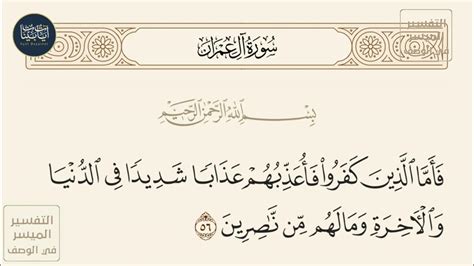 آيات بينات
التفسير
الميسر
في الوصف
سُورَةُ آلِ عِمْرَان
بِسْمِ اللَّهِ الرَّحْمَٰنِ الرَّحِيمِ
فَأَمَّا ٱلَّذِينَ كَفَرُواْ فَأُعَذِّبُهُمْ عَذَابٗا شَدِيدٗا فِي ٱلدُّنۡيَا
وَٱلۡأٓخِرَةِ وَمَا لَهُم مِّن نَّٰصِرِينَ ٥٦
التفسير
الميسر
في الوصف